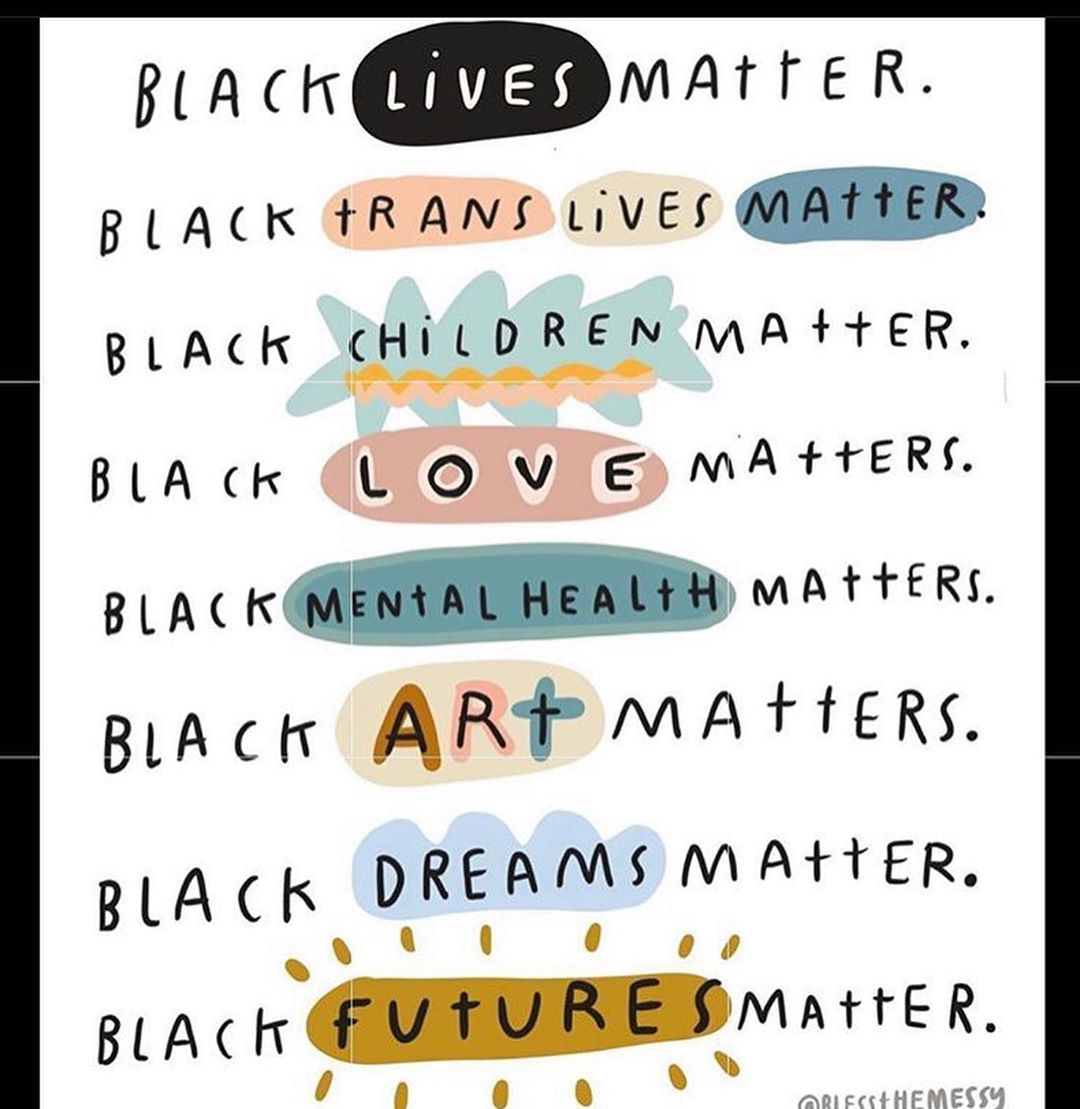 BLACK LiVES MATTER.
BLACK TRANS LiVES MATTER.
BLACK CHiLDREN MATTER.
BLACK LOVE MATTERS.
BLACK MENTAL HEALTH MATTERS.
BLACK ART MATTERS.
BLACK DREAMS MATTER.
BLACK FUTURES MATTER.
@BLESSTHEMESSY